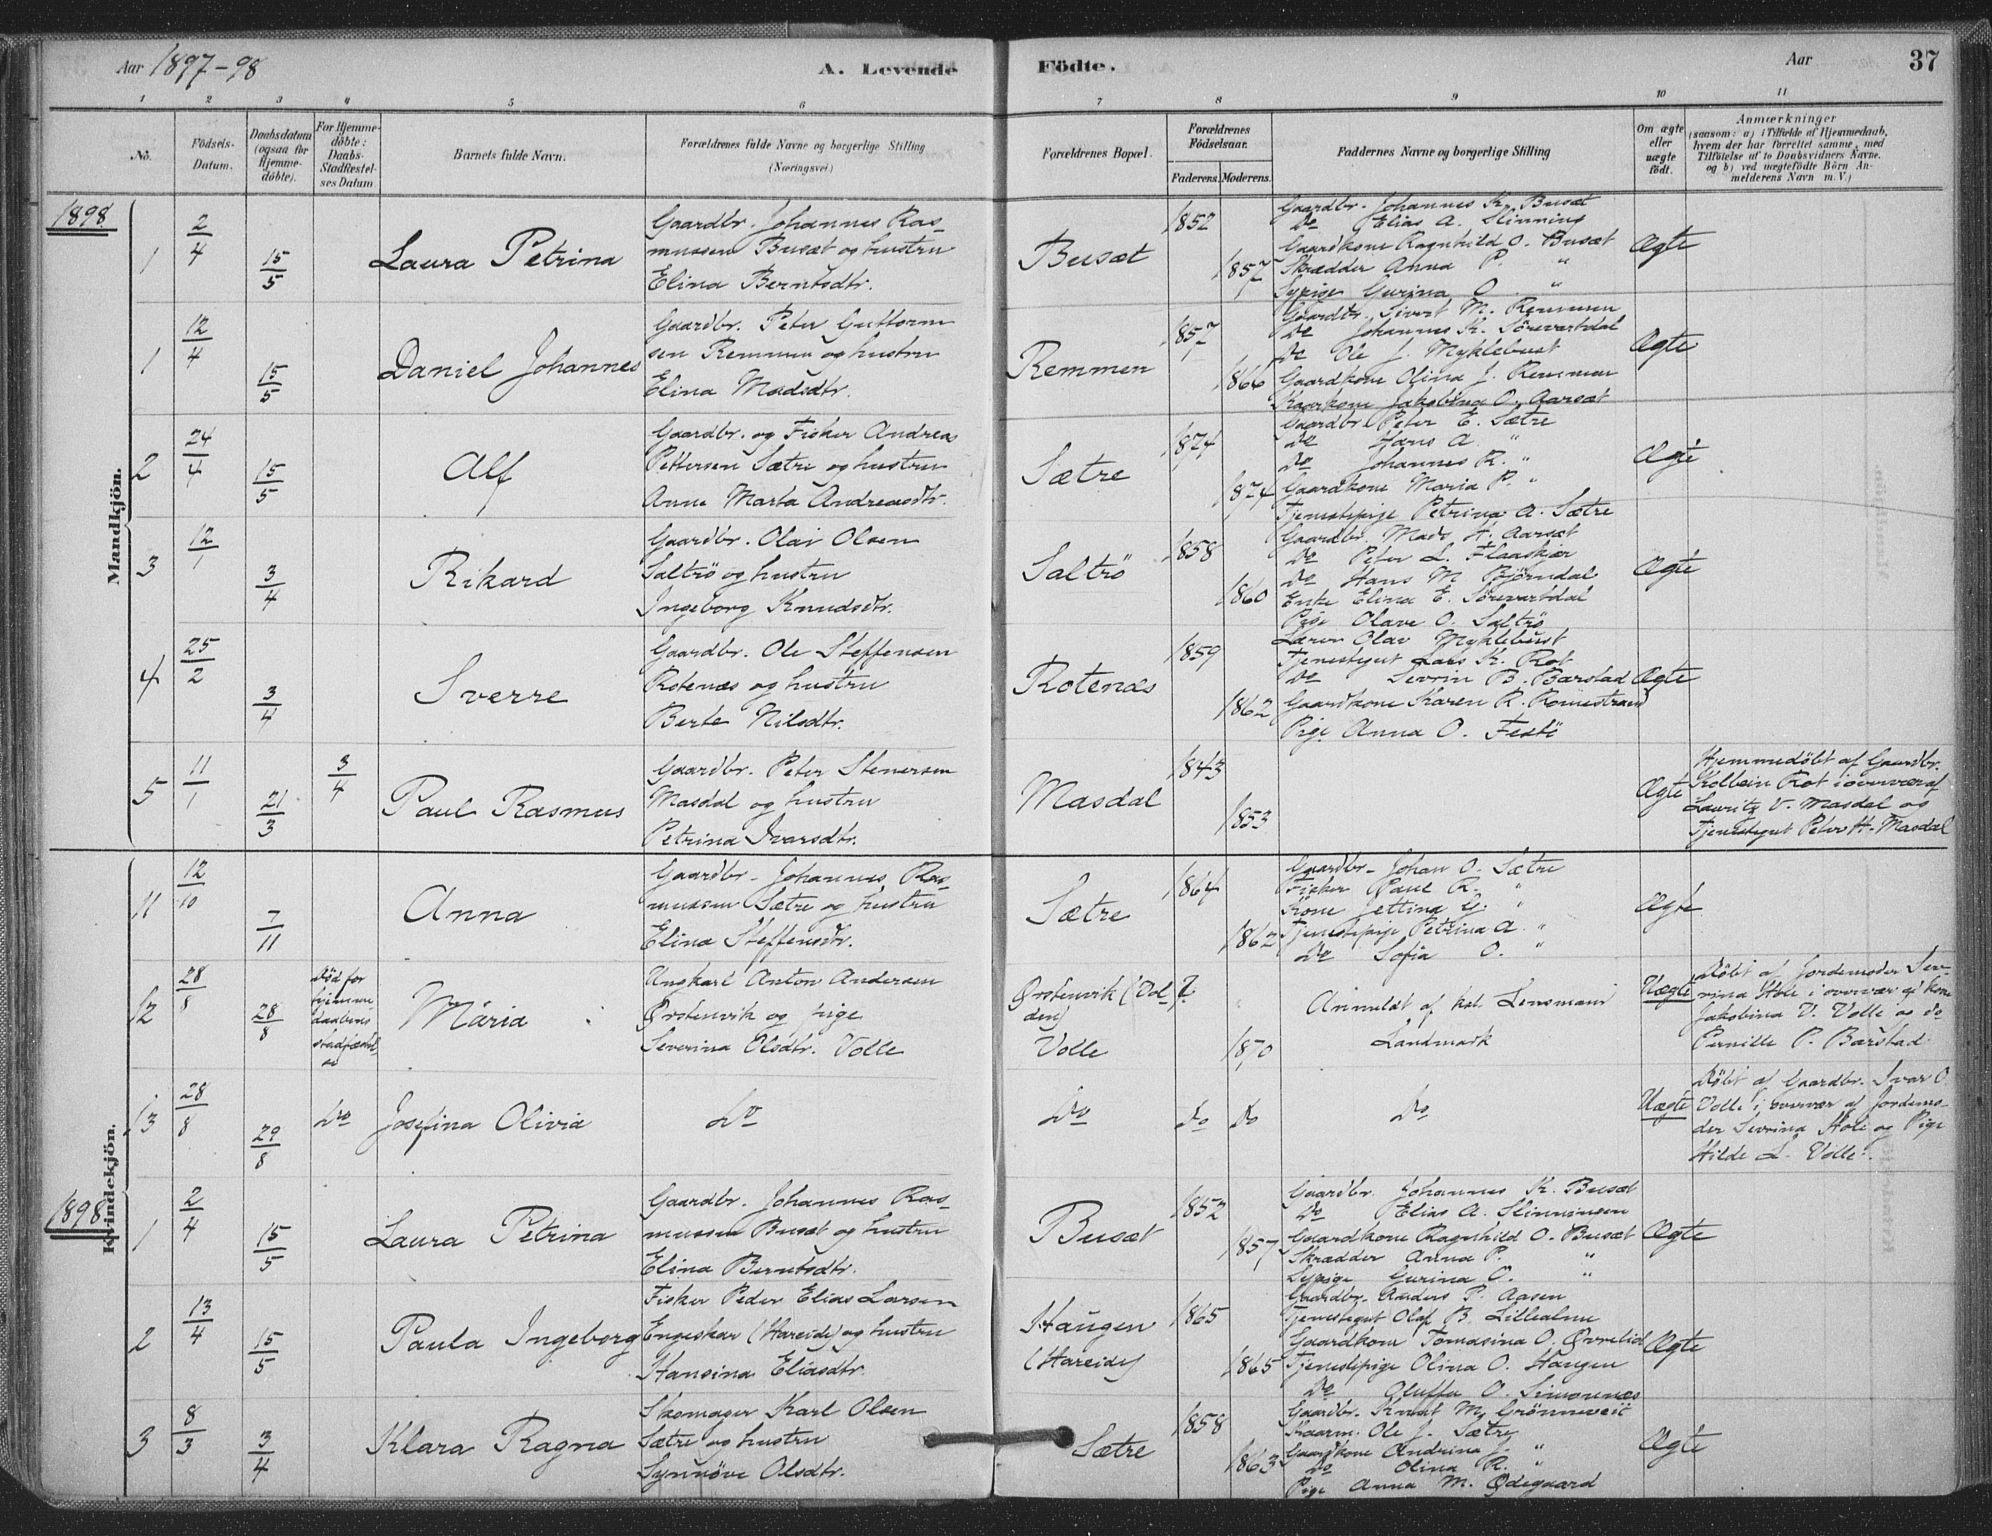 Aar 1897-98 A. Levende Födte. Aar 37
1 2 3 4 5 6 7 8 9 10 11
No.
Födsels-Datum.
Daabsdatum (ogsaa for Hjemme-döbte).
For Hjemme-döbte: Daabs-Stadfæstel-ses Datum
Barnets fulde Navn.
Forældrenes fulde Navne og borgerlige Stilling
(Næringsvei)
Forældrenes Bopæl.
Forældrenes Födselsaar.
Faderens. Moderens.
Faddernes Navne og borgerlige Stilling
Om ægte eller uægte födt.
Anmærkninger
(saasom: a) i Tilfælde af Hjemmedaab,
hvem der har forrettet samme, med
Tilföielse af to Daabsvidners Navne,
og b) ved uægtefödte Börn An-
melderens Navn m. V.)
Mandkjön.
1898
1 2/4 15/5 Laura Petrina
Gaardbr. Johannes Ras-
mussen Busæt og hustru
Elina Berntsdtr.
Busæt 1852 1857
Gaardbr. Johannes K. Busæt
Do Elias A. Slinning
Gaardkone Ragnhild O. Busæt
Skrædder Anna P. "
Sypige Gurina O. "
Ægte
1 12/4 15/5 Daniel Johannes
Gaardbr. Peter Guttorm
sen Remmen og hustru
Elina Madsdtr.
Remmen 1857 1866
Gaardbr. Sivert M. Remmen
Do Johannes K. Sörevartdal
Do Ole J. Myklebust
Gaardkone Olina J. Remmen
Kaarkone Jakobina O. Aarsæt
Ægte
2 24/4 15/5 Alf
Gaardbr. og Fisker Andreas
Pettersen Sætre og hustru
Anne Marta Andreasdtr.
Sætre 1874 1874
Gaardbr. Peter E. Sætre
Do Hans A. "
Do Johannes R. "
Gaardkone Maria P. "
Tjenestepige Petrina A. Sætre
Ægte
3 12/1 3/4 Rikard
Gaardbr. Olai Olsen
Saltrö og hustru
Ingeborg Knudsdtr.
Saltrö 1858 1860
Gaardbr. Mads H. Aarsæt
Do Peter L. Flaaskjær
Do Hans M. Björndal
Enke Elina E. Sörevartdal
Pige Olave O. Saltrö
Ægte
4 25/2 3/4 Sverre
Gaardbr. Ole Steffensen
Rotenæs og hustru
Berte Nilsdtr.
Rotenæs 1859 1862
Lærer Olav Myklebust
Tjenestegut Lars K. Rot
Do Sevrin B. Barstad
Gaardkone Karen R.
Pige Anna O. Festö
Ægte
5 11/1 21/3 3/4 Paul Rasmus
Gaardbr. Peter Stenersen
Masdal og hustru
Petrina Ivarsdtr.
Masdal 1843 1853
Ægte
Hjemmedöbt af Gaardbr.
Kolbein Rot i overvær af
Lauritz V. Masdal og
Tjenestegut Peter H. Masdal
Kvindekjön.
11 12/10 7/11 Anna
Gaardbr. Johannes Ras-
mussen Sætre og hustru
Elina Steffensdtr.
Sætre 1864 1862
Gaardbr. Johan O. Sætre
Fisker Paul R. "
Kone Jettina G. "
Tjenestepige Petrina A. "
Do Sofia O. "
Ægte
12 28/8 28/8
Död för
hjemme
daabens
stadfæstel
se
Maria
Ungkarl Anton Andersen
Ørstenvik og pige
Severina Olsdtr. Volle
Ørstenvik (Vol-
den)
Volle
? 1870
Anmeldt af kst. Lensmann
Landmark
Uægte
Döbt af Jordemoder Sev-
rina Hole i overvær af kone
Jakobina V. Volle og do
Pernille P. Barstad
13 28/8 29/8 Do Josefina Olivia
Do Do Do Do Do
Uægte
Döbt af Gaardbr. Ivar O.
Volle i overvær af Jordemo-
der Sevrina Hole og Pige
Hilde L. Volle.
1898
1 2/4 15/5 Laura Petrina
Gaardbr. Johannes Ras-
mussen Busæt og hustru
Elina Berntsdtr.
Busæt 1852 1857
Gaardbr. Johannes K. Busæt
Do Elias A.
Gaardkone Ragnhild O. Busæt
Skrædder Anna P. "
Sypige Gurina O. "
Ægte
2 13/4 15/5 Paula Ingeborg
Fisker Peder Elias Larsen
Engeskar (Hareide) og hustru
Hansina Eliasdtr.
Haugen
(Hareide)
1865 1865
Gaardbr. Anders P. Aasen
Tjenestegut Olaf B.
Gaardkone Tomasina O. Øvrelid
Tjenestepige Olina O. Haugen
Do Oluffa O. Simonnæs
Ægte
3 8/3 3/4 Klara Ragna
Skomager Karl Olsen
Sætre og hustru
Synnöve Olsdtr.
Sætre 1858 1863
Gaardbr. Knut M. Grönnevik
Kaarm. Ole J. Sætre
Gaardkone Andrina J. "
Do Olina R. "
Pige Anna M. Ødegaard
Ægte